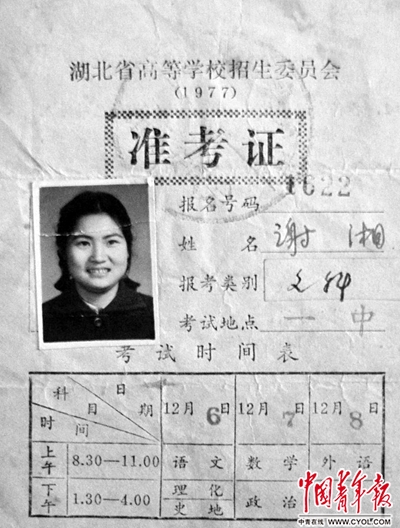 湖北省高等学校招生委员会
(1977)
准考证
报名号码 1622
姓名 谢湘
报考类别 文科
考试地点 一中
考试时间表
科目 日期 时间 12月6日 12月7日 12月8日
上午 8.30—11.00 语文 数学 外语
下午 1.30—4.00 理化 史地 政治
中国青年报
中青在线 WWW.CYOL.COM